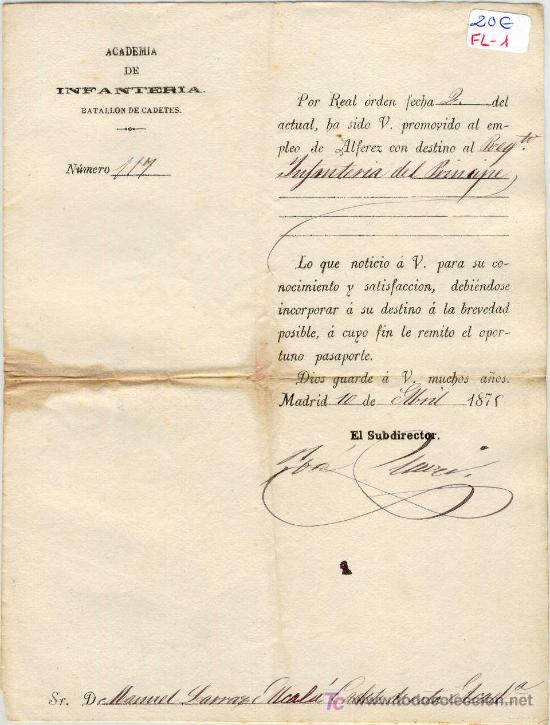 20€
FL-1
ACADEMIA
DE
INFANTERIA.
BATALLON DE CADETES.
Número 117
Por Real órden fecha 2 del
actual, ha sido V. promovido al em-
pleo de Alferez con destino al Regto
Infanteria del Principe
Lo que noticio á V. para su co-
nocimiento y satisfaccion, debiéndose
incorporar á su destino á la brevedad
posible, á cuyo fin le remito el opor-
tuno pasaporte.
Dios guarde á V. muchos años.
Madrid 10 de Abril 1875
El Subdirector.
José
Sr. D. Manuel Larraz Alcalá Cadete de la Acada
todocoleccion
www.todocoleccion.net